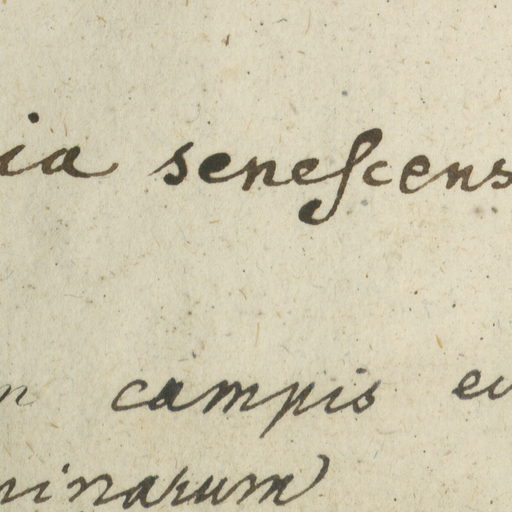 ia senescens
n campis eu
minarum